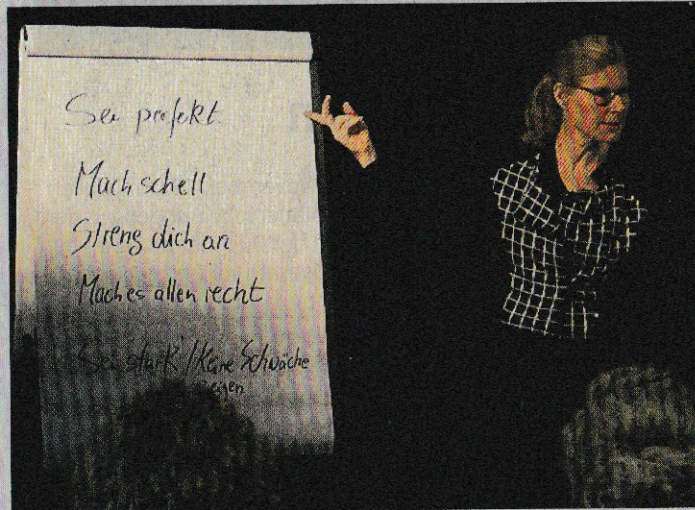 Sei perfekt
Mach schell
Streng dich an
Mach es allen recht
Sei stark / Keine Schwäche
zeigen